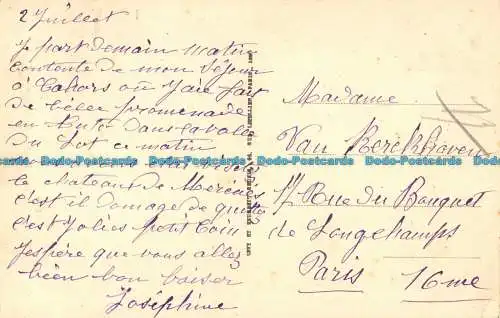 2 Juillet
Je part demain matin
Contente de mon séjour
à Cahors où J'aie fait
de belles promenade
en auto dans la vallé
du Lot ce matin
le chateaux de Mercuès
c'est domage de quitter
c'est Jolies petit Coin
J'espère que vous allez
bien bon baiser
Joséphine
Madame
Van Kerckhoven
11 Rue du Bouquet
de Longchamps
Paris 16me
Postcards Postcards Postcards Postcards Postcards